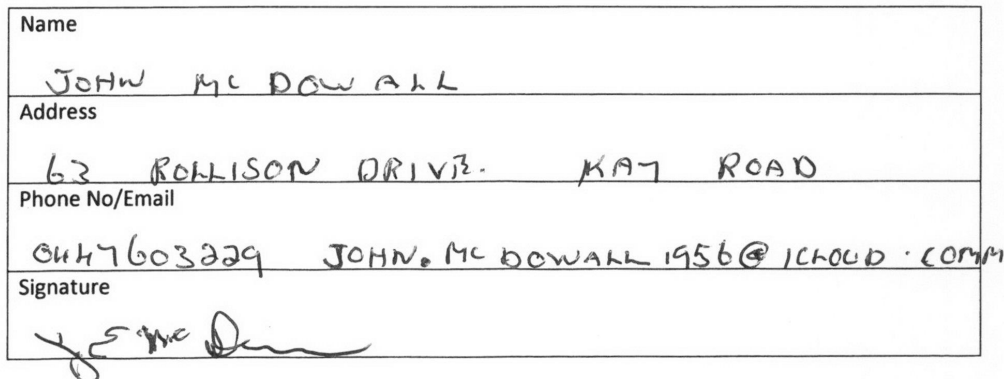 Name
JOHN MC DOWALL
Address
63 ROLLISON DRIVE. KAY ROAD
Phone No/Email
0447603229 JOHN.MCDOWALL1956@ICLOUD.COMM
Signature